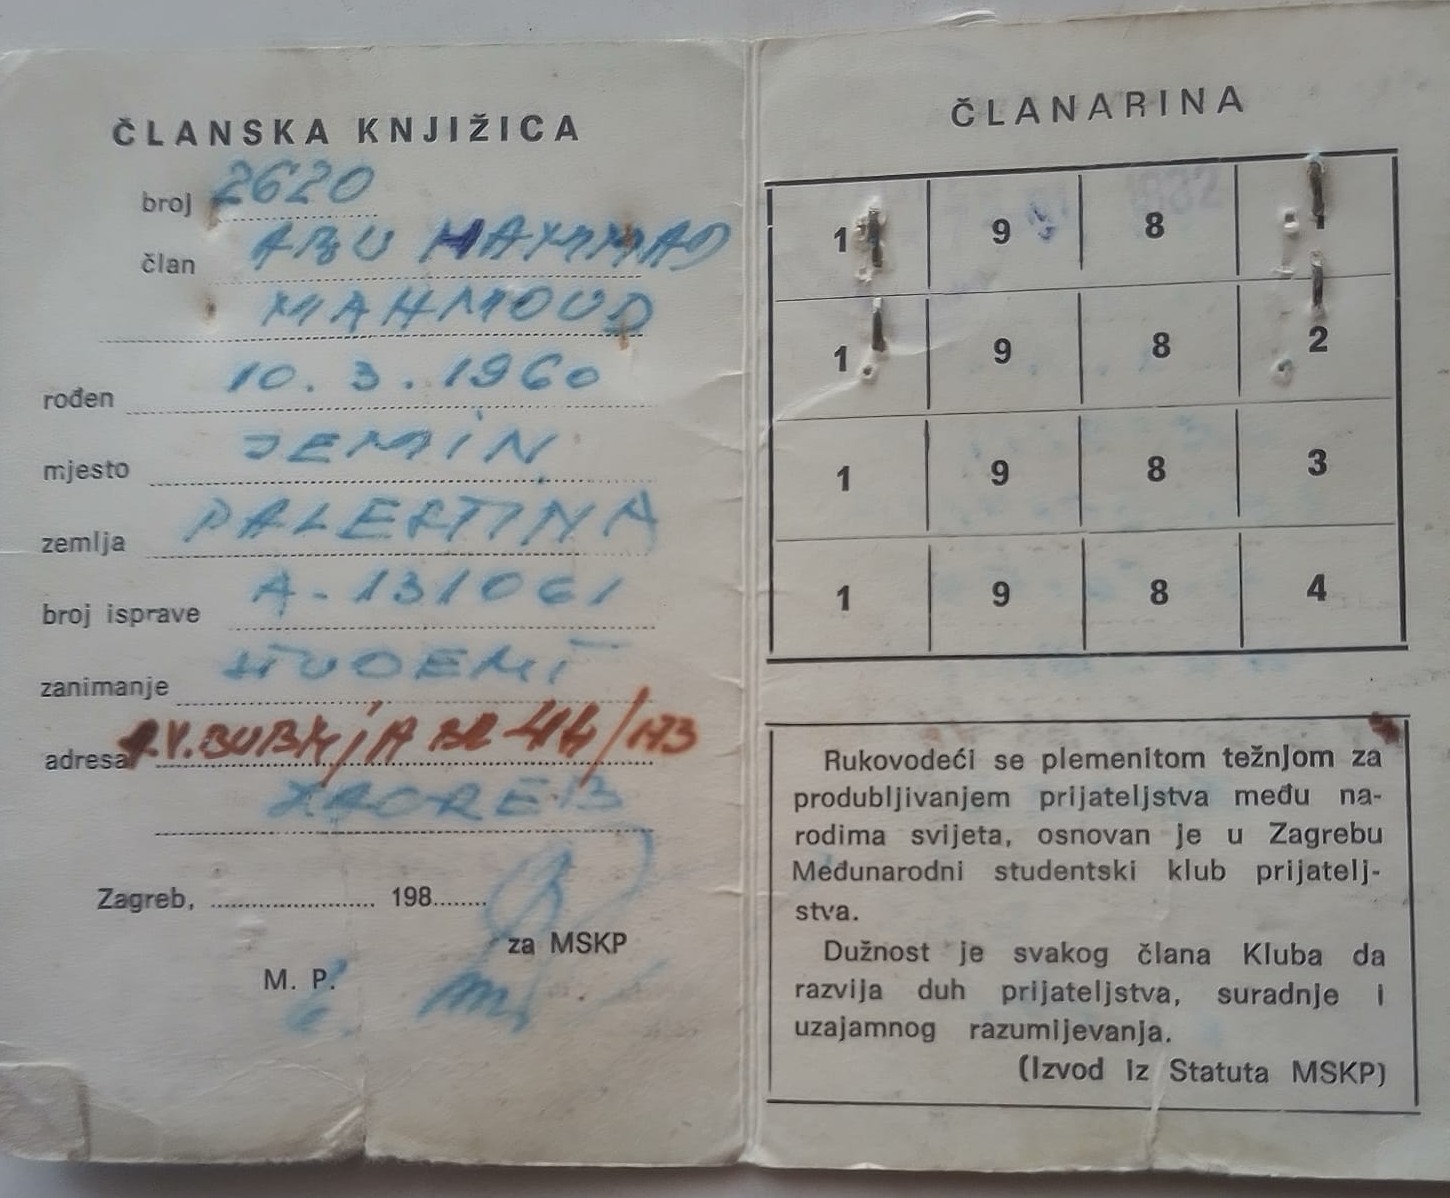 ČLANSKA KNJIŽICA
broj 2620
član ABU HAMMAD
MAHMOUD
rođen 10. 3. 1960
mjesto JENIN
zemlja PALESTINA
broj isprave A-131061
zanimanje STUDENT
adresa 44/173
ZAGREB
Zagreb, ........................ 198........
za MSKP
M. P.
ČLANARINA
1 9 8 1
1 9 8 2
1 9 8 3
1 9 8 4
Rukovodeći se plemenitom težnjom za
produbljivanjem prijateljstva među na-
rodima svijeta, osnovan je u Zagrebu
Međunarodni studentski klub prijatelj-
stva.
Dužnost je svakog člana Kluba da
razvija duh prijateljstva, suradnje i
uzajamnog razumijevanja.
(Izvod iz Statuta MSKP)